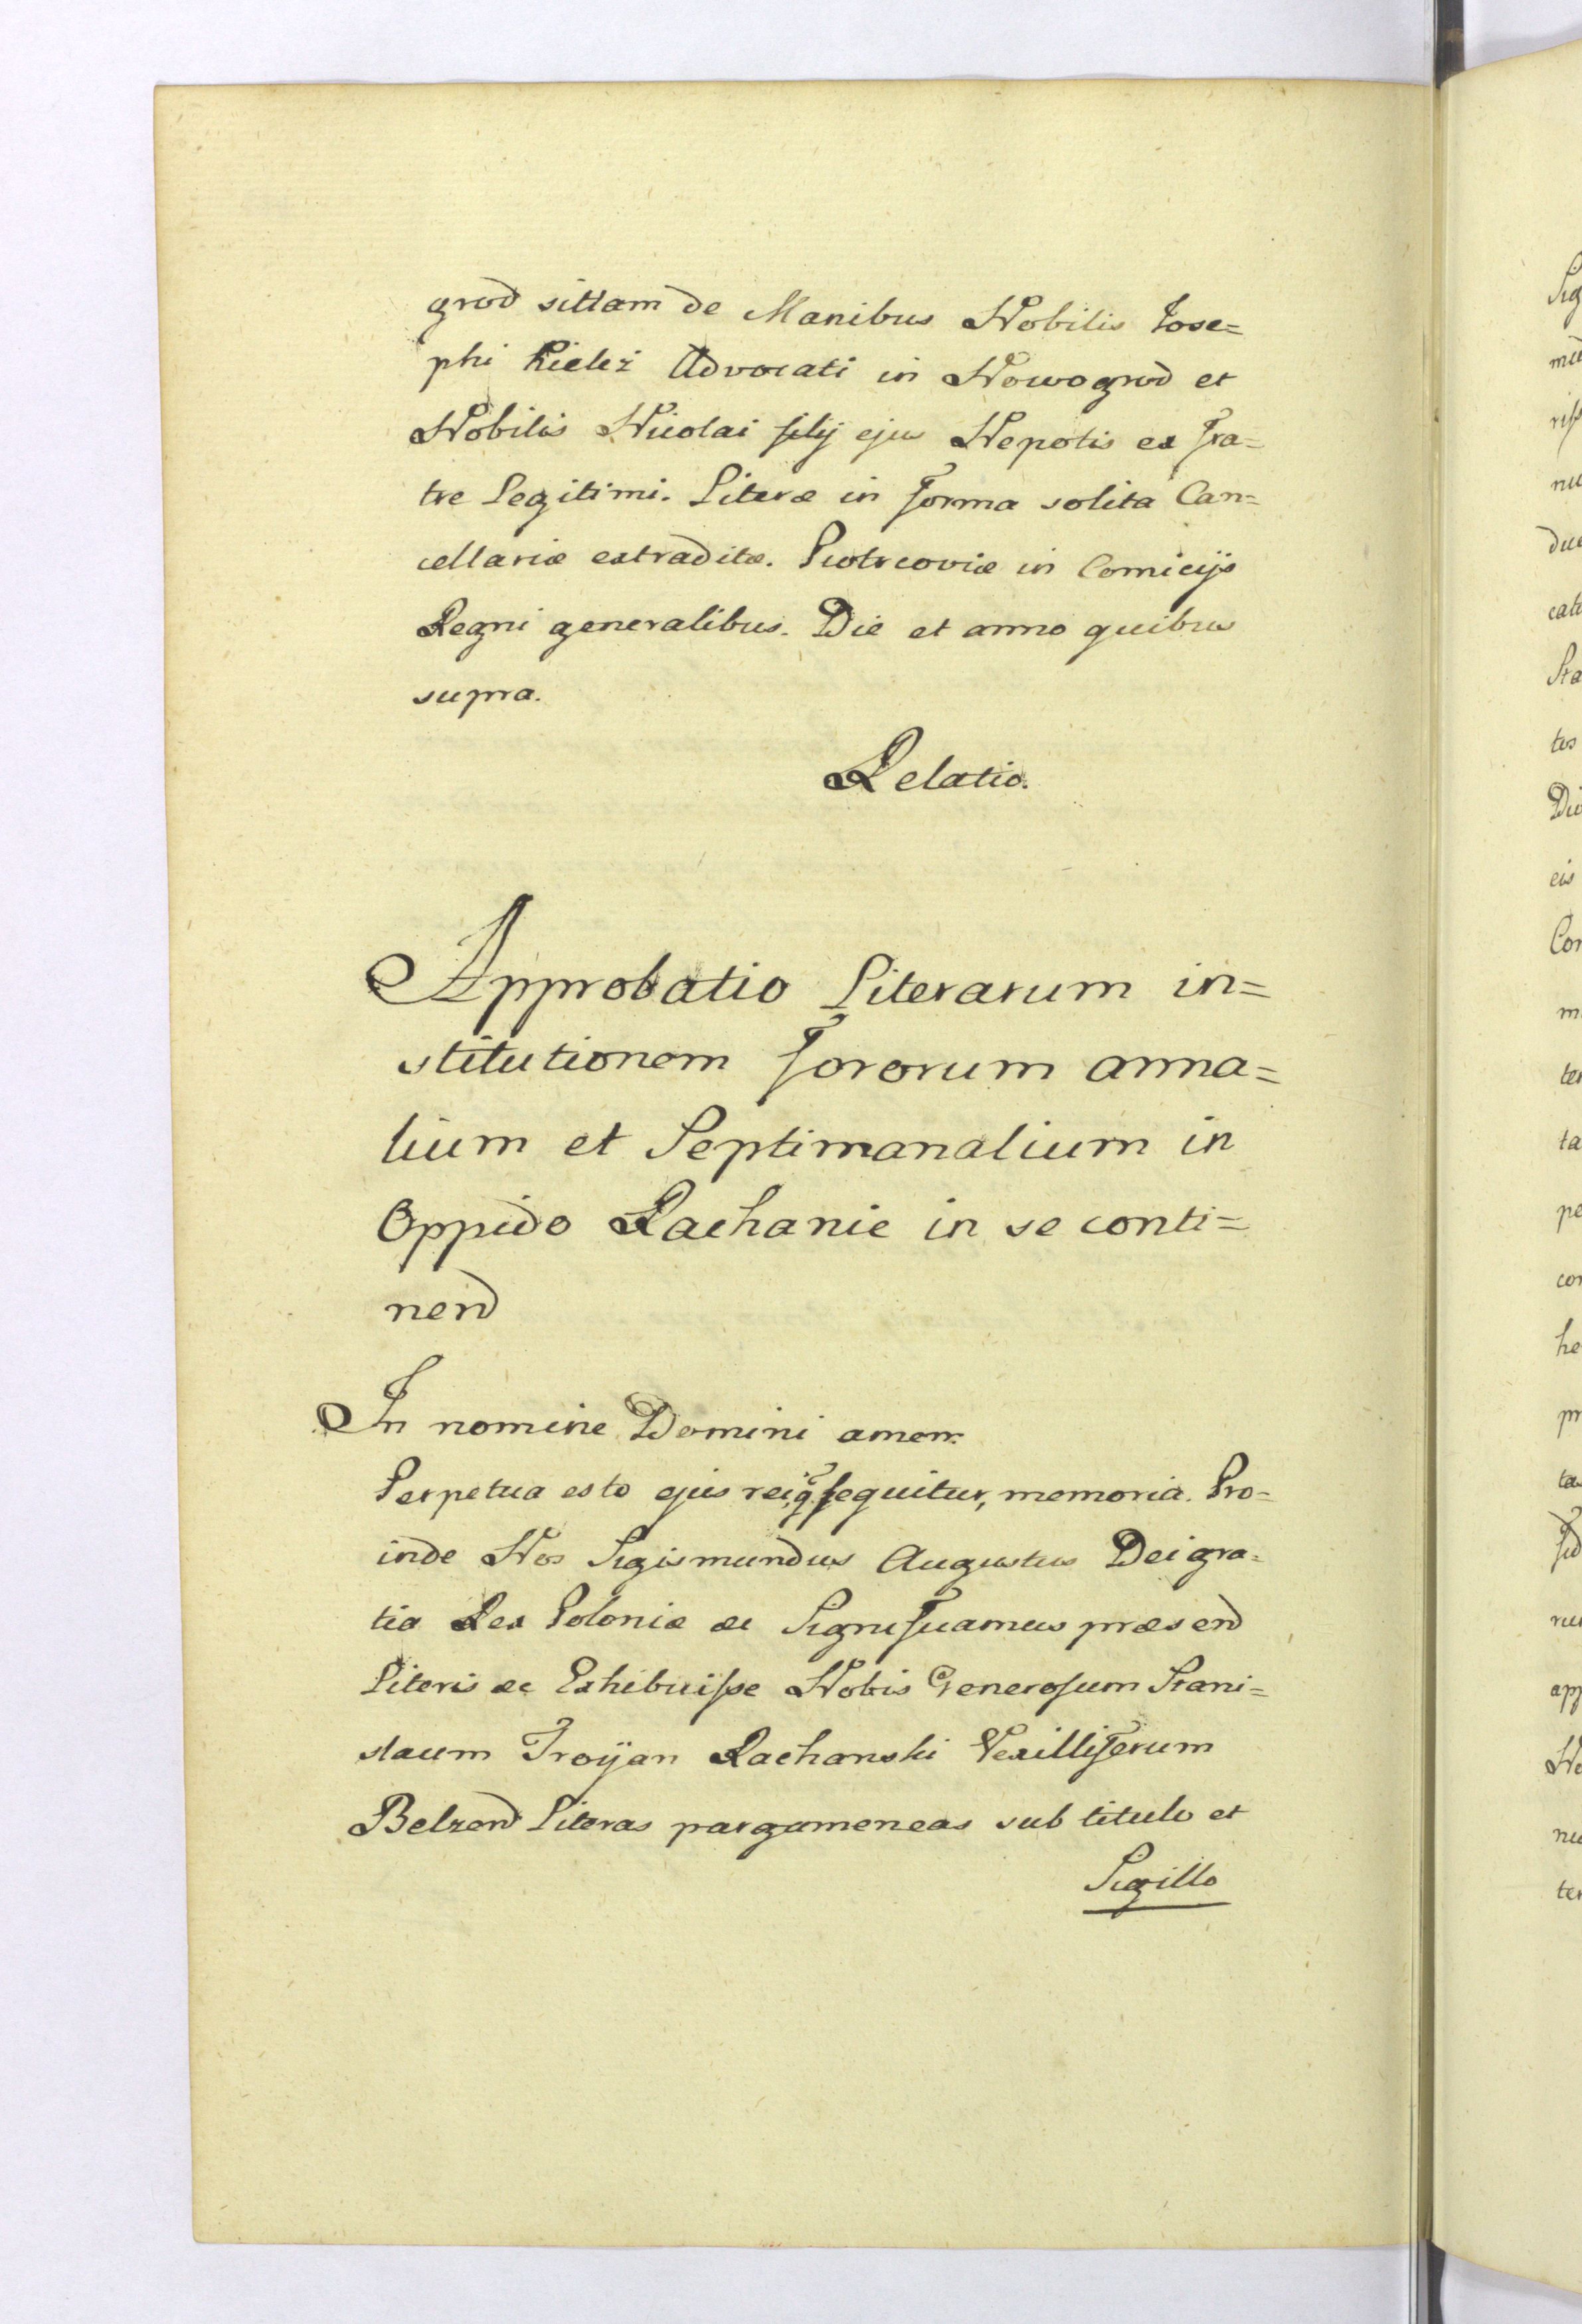 grod sittam de Manibus Nobilis Jose=
phi Kielcz Advocati in Nowogrod et
Nobilis Nicolai filij ejus Nepotis ex fra=
tre Legitimi. Literæ in forma solita Can=
cellariæ extraditæ. Piotrcoviæ in Comicijs
Regni generalibus. Die et anno quibus
supra.
Relatio.
Approbatio Literarum in=
stitutionem fororum anna=
lium et Septimanalium in
Oppido Rachanie in se conti=
nend
In nomine Domini amen.
Perpetua esto ejus rei, q sequitur, memoria. Pro=
inde Nos Sigismundus Augustus Dei gra=
tia Rex Poloniæ &c Significamus præsend
Literis &c Exhibuisse Nobis Generosum Stani=
slaum Troyan Rachanski Vexilliferum
Belzend Literas pargameneas sub titulo et
Sigillo